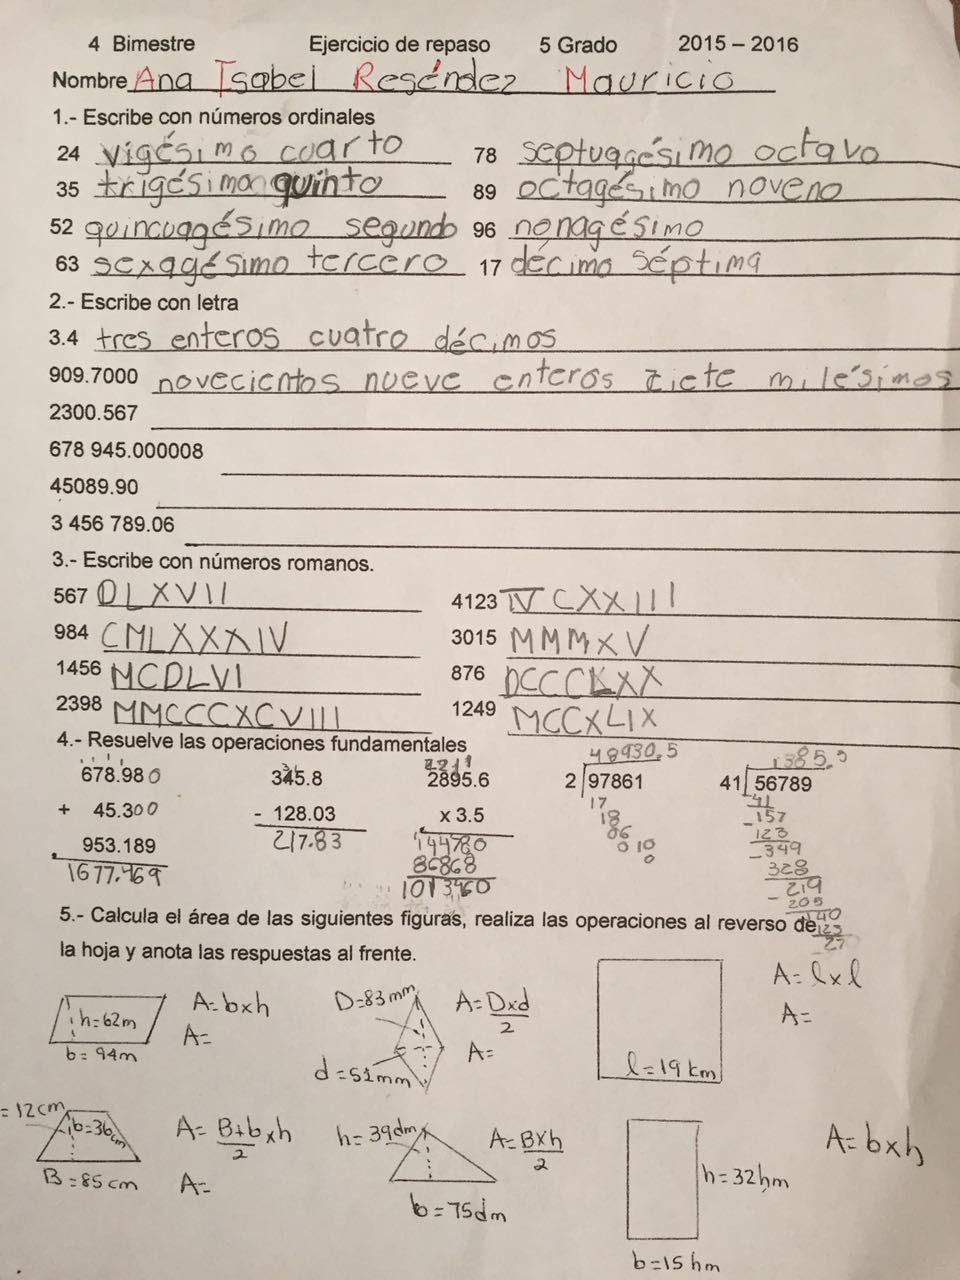 4 Bimestre Ejercicio de repaso 5 Grado 2015 – 2016
Nombre Ana Isabel Reséndez Mauricio
1.- Escribe con números ordinales
24 vigésimo cuarto 78 septuagésimo octavo
35 trigésimo quinto 89 octagésimo noveno
52 quincuagésimo segundo 96 nonagésimo
63 sexagésimo tercero 17 décimo séptima
2.- Escribe con letra
3.4 tres enteros cuatro décimos
909.7000 novecientos nueve enteros ziete milésimos
2300.567
678 945.000008
45089.90
3 456 789.06
3.- Escribe con números romanos.
567 DLXVII 4123 IV CXXIII
984 CMLXXXIV 3015 MMMXV
1456 MCDLVI 876 DCCCLXX
2398 MMCCCXCVIII 1249 MCCXLIX
4.- Resuelve las operaciones fundamentales
678.980 345.8 2895.6 48930.5 1385.
+ 45.300 - 128.03 x 3.5 2 97861 41 56789
953.189 217.83 144780 17 41
1677.469 86868 18 -157
1013460 06 123
010 -349
0 328
219
- 205
140
123
27
5.- Calcula el área de las siguientes figuras, realiza las operaciones al reverso de
la hoja y anota las respuestas al frente.
h=62m A=bxh D=83mm A=Dxd/2 A=lxl
b=94m A= d=51mm A= l=19km A=
=12cm b=36cm A=B+b/2xh h=39dm A=Bxh/2 h=32hm A=bxh
B=85cm A= b=75dm b=15hm